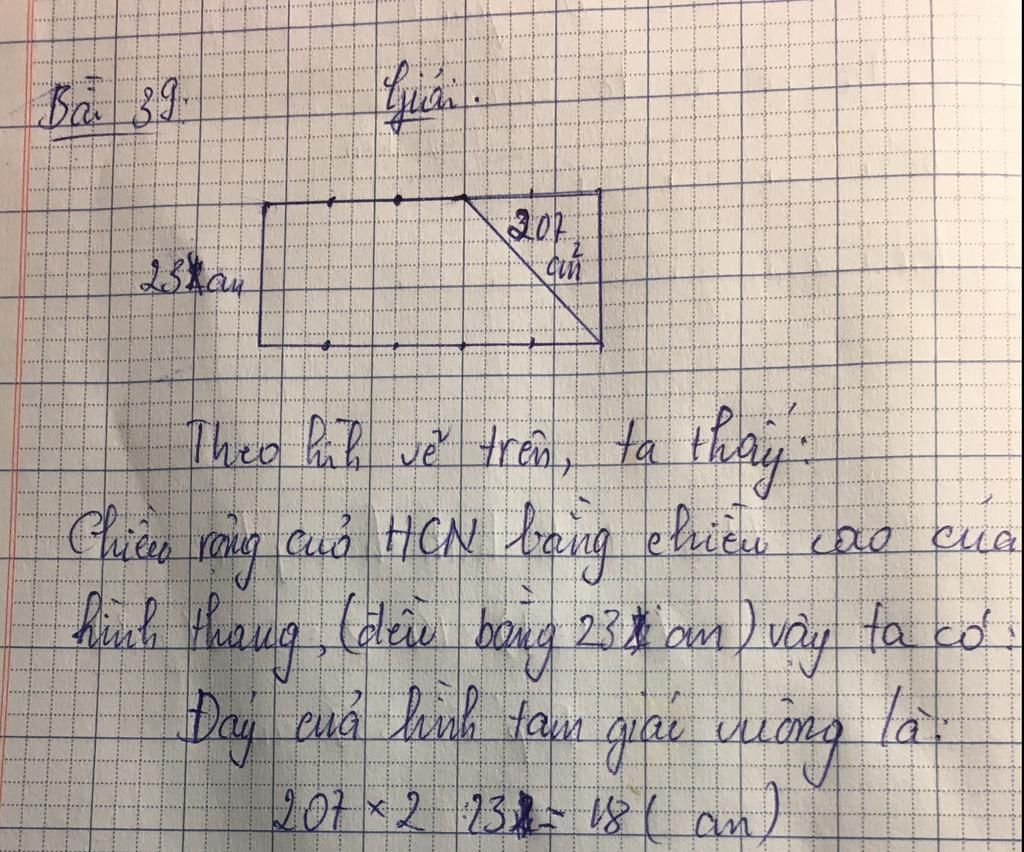 Bài 39.
Giải.
207
cm²
23 cm
Theo hình vẽ trên, ta thấy:
Chiều rộng củả HCN bằng chiều cao của
hình thang, (đều bằng 23 cm) vậy ta có:
Đáy củả hình tam giác vuông là:
207 × 2 : 23 = 18 ( cm)